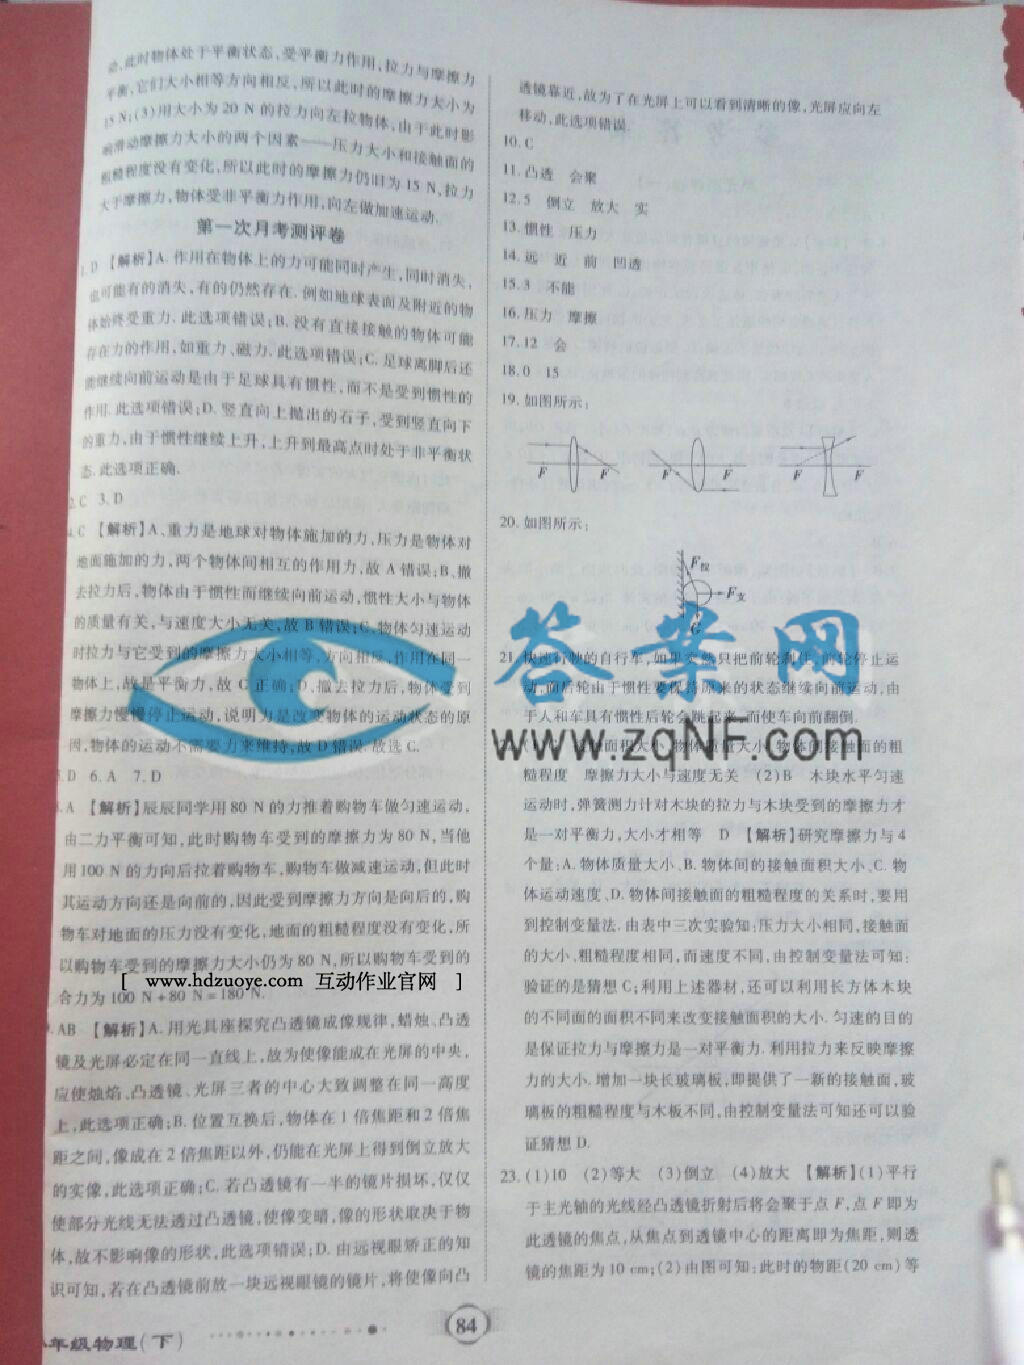 动,此时物体处于平衡状态,受平衡力作用,拉力与摩擦力
平衡,它们大小相等方向相反,所以此时的摩擦力大小为
15 N;(3)用大小为 20 N 的拉力向左拉物体,由于此时影
响滑动摩擦力大小的两个因素——压力大小和接触面的
粗糙程度没有变化,所以此时的摩擦力仍旧为 15 N,拉力
大于摩擦力,物体受非平衡力作用,向左做加速运动.
第一次月考测评卷
1.D 【解析】A.作用在物体上的力可能同时产生,同时消失,
也可能有的消失,有的仍然存在.例如地球表面及附近的物
体始终受重力.此选项错误;B.没有直接接触的物体可能
存在力的作用,如重力、磁力.此选项错误;C.足球离脚后还
能继续向前运动是由于足球具有惯性,而不是受到惯性的
作用.此选项错误;D.竖直向上抛出的石子,受到竖直向下
的重力,由于惯性继续上升,上升到最高点时处于非平衡状
态.此选项正确.
2.C 3.D
4.C 【解析】A、重力是地球对物体施加的力,压力是物体对
地面施加的力,两个物体间相互的作用力,故 A 错误;B、撤
去拉力后,物体由于惯性而继续向前运动,惯性大小与物体
的质量有关,与速度大小无关,故 B 错误;C、物体匀速运动
时拉力与它受到的摩擦力大小相等,方向相反,作用在同一
物体上,故是平衡力,故 C 正确;D、撤去拉力后,物体受到
摩擦力慢慢停止运动,说明力是改变物体的运动状态的原
因,物体的运动不需要力来维持,故 D 错误.故选 C.
5.D 6.A 7.D
8.A 【解析】辰辰同学用 80 N 的力推着购物车做匀速运动,
由二力平衡可知,此时购物车受到的摩擦力为 80 N,当他
用 100 N 的力向后拉着购物车,购物车做减速运动,但此时
其运动方向还是向前的,因此受到摩擦力方向是向后的,购
物车对地面的压力没有变化,地面的粗糙程度没有变化,所
以购物车受到的摩擦力大小仍为 80 N,所以购物车受到的
合力为 100 N+80 N=180 N.
9.AB 【解析】A.用光具座探究凸透镜成像规律,蜡烛、凸透
镜及光屏必定在同一直线上,故为使像能成在光屏的中央,
应使烛焰、凸透镜、光屏三者的中心大致调整在同一高度
上,此选项正确;B.位置互换后,物体在 1 倍焦距和 2 倍焦
距之间,像成在 2 倍焦距以外,仍能在光屏上得到倒立放大
的实像,此选项正确;C.若凸透镜有一半的镜片损坏,仅仅
使部分光线无法透过凸透镜,使像变暗,像的形状取决于物
体,故不影响像的形状,此选项错误;D.由远视眼矫正的知
识可知,若在凸透镜前放一块远视眼镜的镜片,将使像向凸
透镜靠近,故为了在光屏上可以看到清晰的像,光屏应向左
移动,此选项错误.
10.C
11.凸透 会聚
12.5 倒立 放大 实
13.惯性 压力
14.远 近 前 凹透
15.3 不能
16.压力 摩擦
17.12 会
18.0 15
19.如图所示:
F F F F F F
20.如图所示:
F拉
F支
G
21.快速行驶的自行车,如果突然只把前轮刹住,前轮停止运
动,而后轮由于惯性要保持原来的状态继续向前运动,由
于人和车具有惯性后轮会跳起来,而使车向前翻倒.
22.(1)C 压力大小、物体质量大小、物体间接触面的粗
糙程度 摩擦力大小与速度无关 (2)B 木块水平匀速
运动时,弹簧测力计对木块的拉力与木块受到的摩擦力才
是一对平衡力,大小才相等 D 【解析】研究摩擦力与 4
个量:A.物体质量大小、B.物体间的接触面积大小、C.物
体运动速度、D.物体间接触面的粗糙程度的关系时,要用
到控制变量法.由表中三次实验知:压力大小相同,接触面
的大小、粗糙程度相同,而速度不同,由控制变量法可知:
验证的是猜想 C;利用上述器材,还可以利用长方体木块
的不同面的面积不同来改变接触面积的大小.匀速的目的
是保证拉力与摩擦力是一对平衡力.利用拉力来反映摩擦
力的大小.增加一块长玻璃板,即提供了一新的接触面,玻
璃板的粗糙程度与木板不同,由控制变量法可知还可以验
证猜想 D.
23.(1)10 (2)等大 (3)倒立 (4)放大 【解析】(1)平行
于主光轴的光线经凸透镜折射后将会聚于点 F,点 F 即为
此透镜的焦点,从焦点到透镜中心的距离即为焦距,则透
镜的焦距为 10 cm;(2)由图可知:此时的物距(20 cm)等
答案网
www.zqNF.com
[ www.hdzuoye.com 互动作业官网 ]
八年级物理(下)
84